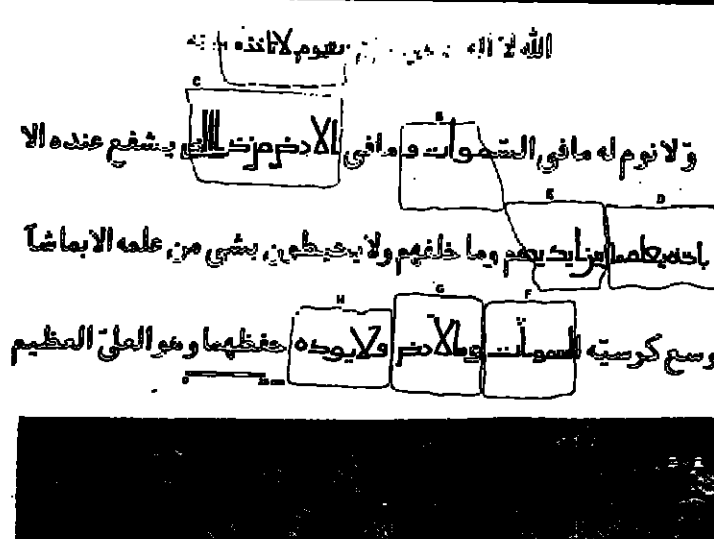 الله لا اله قيوم لا تاخذه
C B
وّ لا نوم له مافي السّموات و مافي الارض من ذا الذي يشفع عنده الا
E D
باذنه يعلم ما بين ايديهم وما خلفهم ولا يحيطون بشي من علمه الا بما شآ
H G F
وسع كرسيّه السموات والارض ولا يوده حفظهما و هو العليّ العظيم
0 25 cm